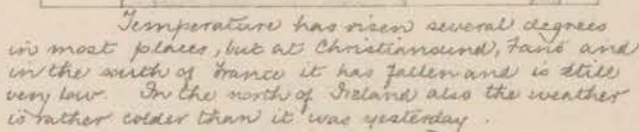 Temperature has risen several degrees
in most places, but at Christiansund, Fanö and
in the south of France it has fallen and is still
very low. In the north of Ireland also the weather
is rather colder than it was yesterday.